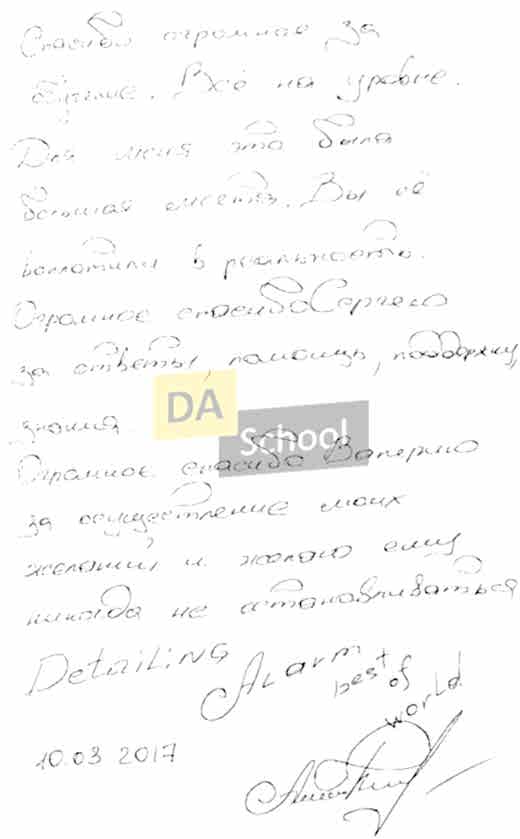 Спасибо огромное за
обучение. Всё на уровне.
Для меня это была
большая мечта. Вы её
воплотили в реальность.
Огромное спасибо Сергею
за ответы, помощь, поддержку,
знания.
DA
School
Огромное спасибо Валерию
за осуществление моих
желаний и желаю ему
никогда не останавливаться
Detailing Alarm best of world
10.03 2017